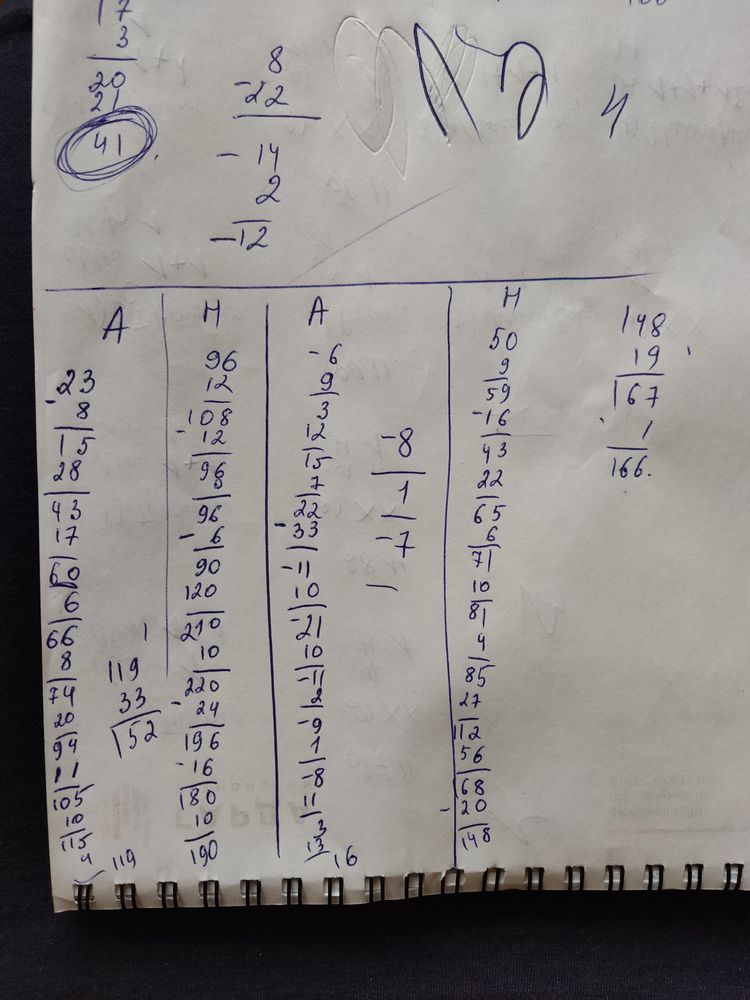 17
3
20
21
41
8
-22
- 14
2
-12
4
А
-23
8
15
28
43
17
60
6
66
8
74
20
94
11
105
10
115
4
119
1
119
33
152
Н
96
12
108
- 12
96
96
- 6
90
120
210
10
220
- 24
196
-16
180
10
190
А
-6
9
3
12
15
7
22
- 33
-11
10
-21
10
-11
2
-9
1
-8
11
3
13
16
-8
1
-7
Н
50
9
59
-16
43
22
65
6
71
10
81
4
85
27
112
56
168
- 20
148
148
19
167
1
166.